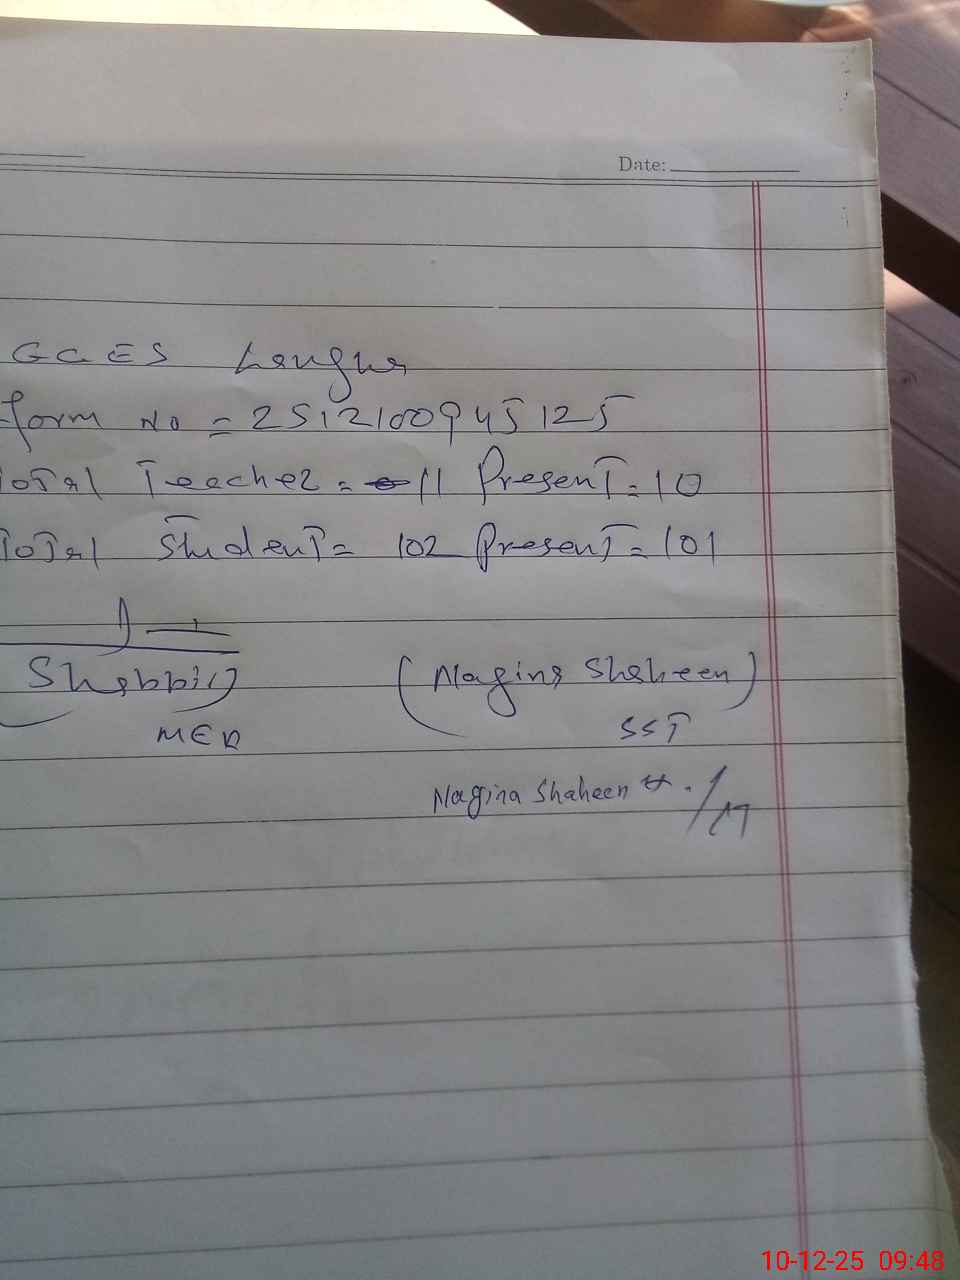 Date:
GGES Langua
form No = 2512100945125
Total Teacher = 11 Present = 10
Total Student = 102 Present = 101
Shabbir)
(Nagina Shaheen)
MEA
SST
Nagina Shaheen
10-12-25 09:48